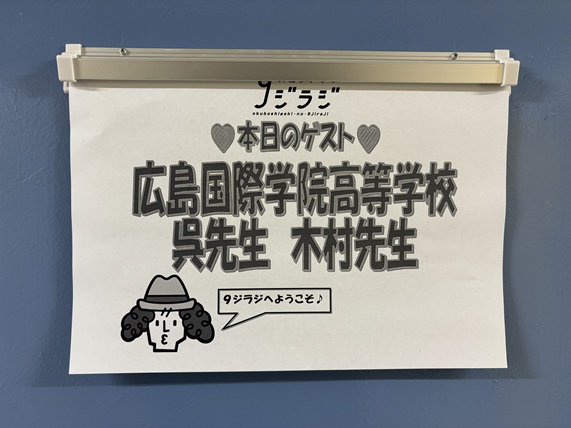 9ジラジ
okuboshigeki-no-9Jiraji
本日のゲスト
広島国際学院高等学校
呉先生 木村先生
9ジラジへようこそ♪